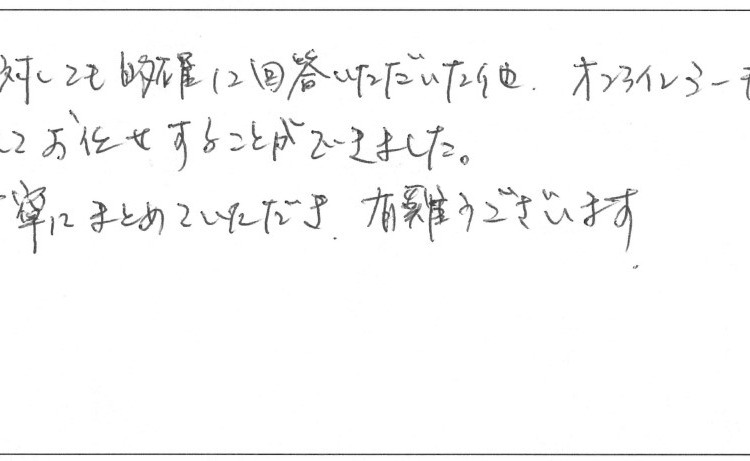 対しても的確に回答いただいた他、オンラインミーテ
してお任せすることができました。
寧にまとめていただき、有難うございます